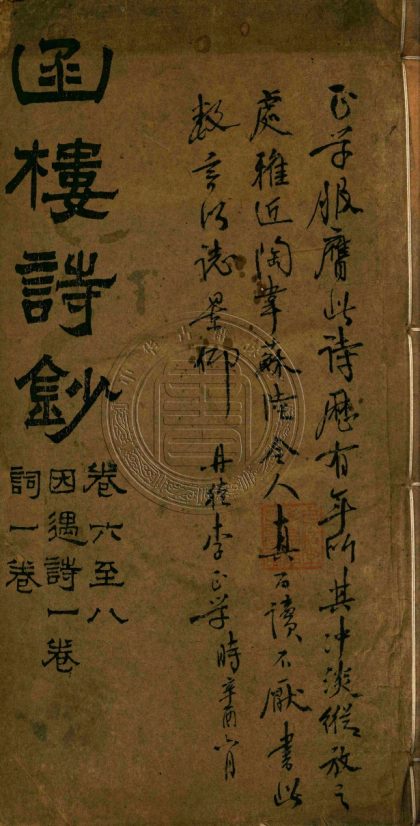 正学服膺此詩歷有年所其冲淡縱放之
處雅近陶韋蘇陸令人真百讀不厭書此
数言以誌景仰 丹稜李正学 時辛酉八月
函樓詩鈔
卷六至八
因遇詩一卷
詞一卷